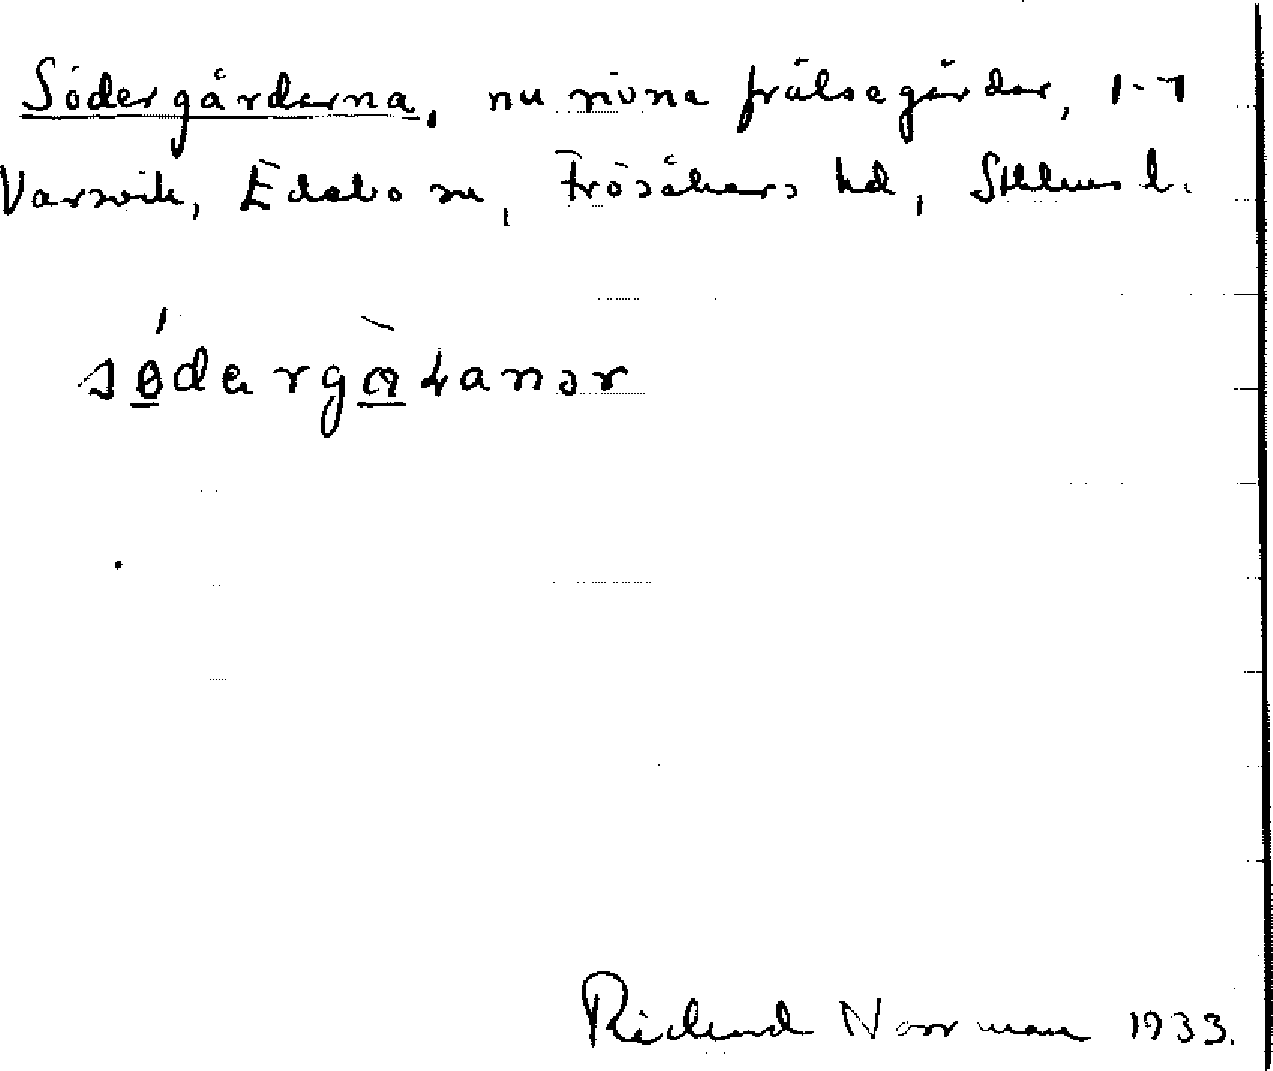 Södergårderna, nu rivna frälsegårdar, 1-7
Varsvik, Edebo sn, Frösåkers hd, Sthlms l.
södergɑ̊ɽanər
Richard Norrman 1933.